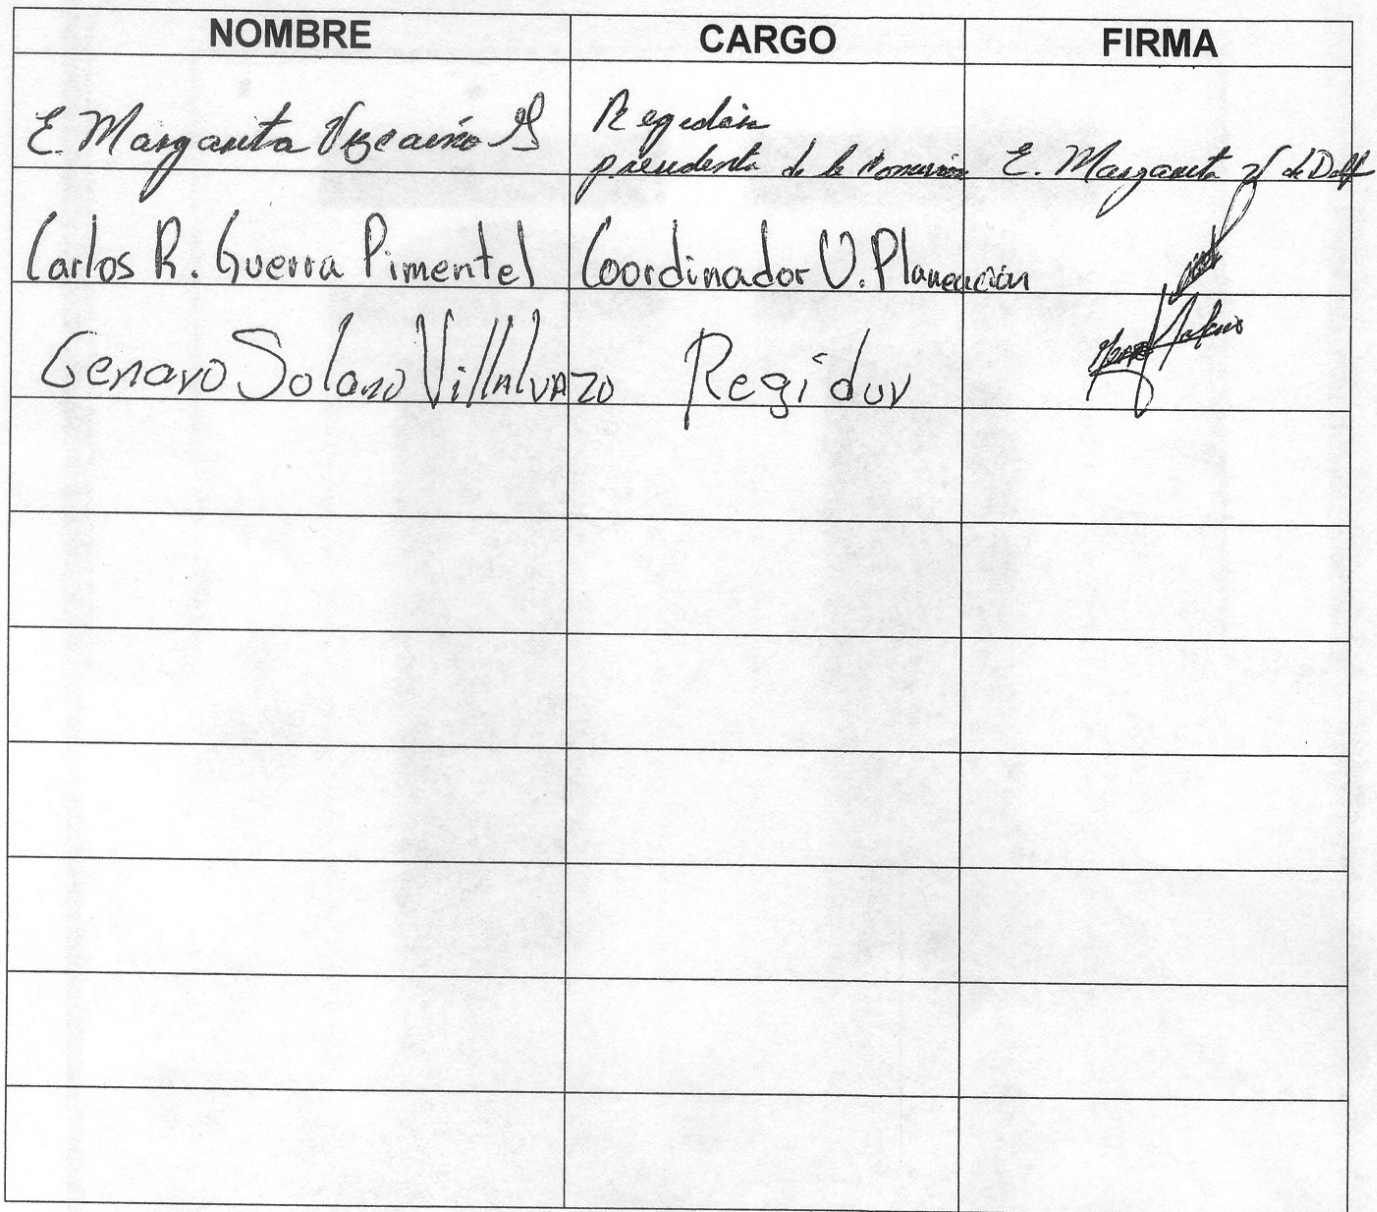 NOMBRE CARGO FIRMA
E. Margarita Vizcaino G Regidora
presidenta de la Comisión E. Margarita V de
Carlos R. Guerra Pimentel Coordinador U. Planeación
Genaro Solano Villalvazo Regidor